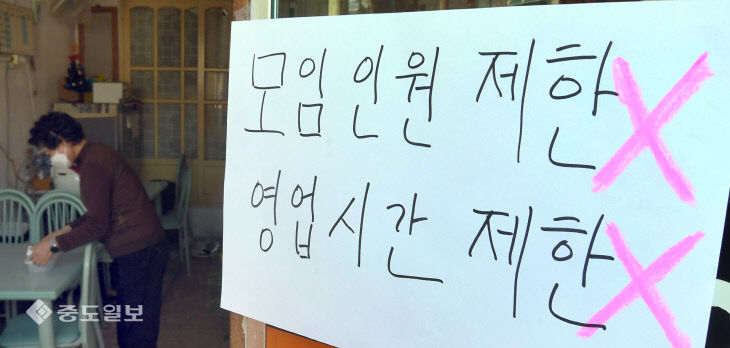 모임인원 제한
영업시간 제한
중도일보